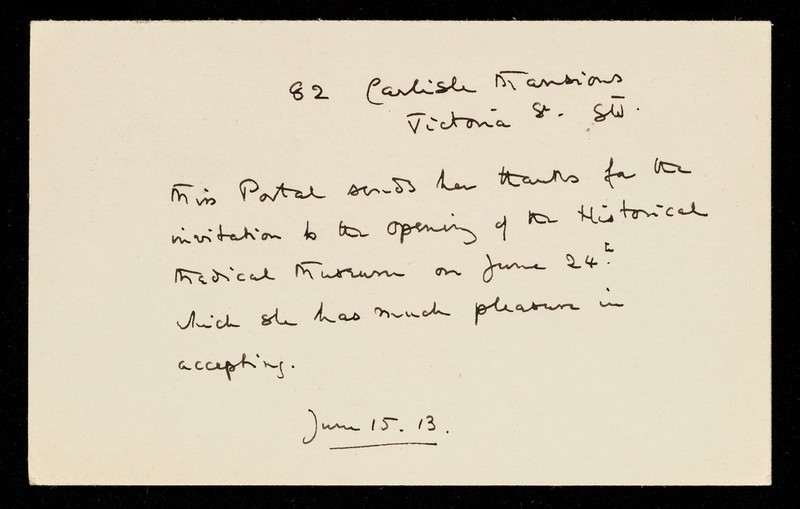 82 Carlisle Mansions
Victoria St. SW.
Miss Portal sends her thanks for the
invitation to the opening of the Historical
Medical Museum on June 24th.
which she has much pleasure in
accepting.
June 15. 13.